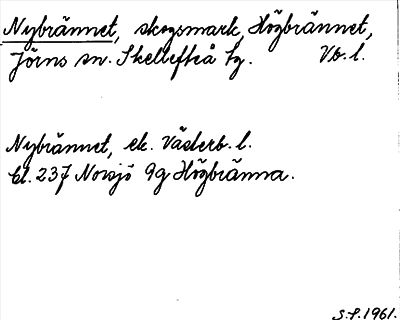 Nybrännet, skogsmark, Högbrännet,
Jörns sn. Skellefteå tg. Vb. l.
Nybrännet, ek. Västerb. l.
bl. 237 Norsjö 9g Högbränna.
S.F. 1961.